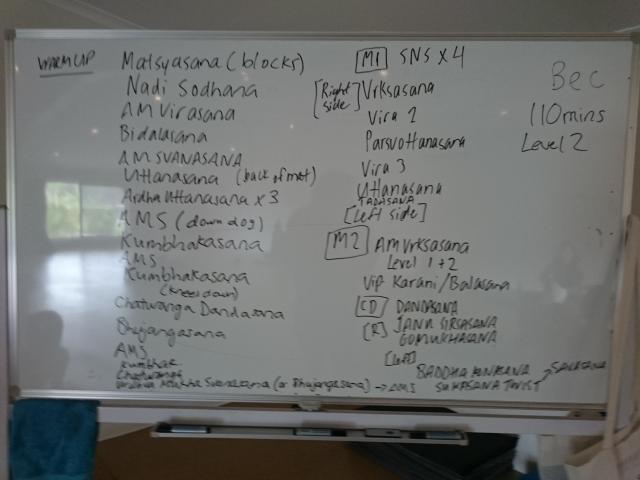 WARM UP
Matsyasana (blocks)
Nadi Sodhana
AM Virasana
Bidalasana
AM SVANASANA
Uttanasana (back of mat)
Ardha Uttanasana x 3
AMS (down dog)
Kumbhakasana
AMS
Kumbhakasana
(knees down)
Chaturanga Dandasana
Bhujangasana
AMS
Kumbhak
Chaturanga
Urdhva Mukha Svanasana (or Bhujangasana) → AMS
M1 SNS x 4
[Right side] Vrksasana
Vira 2
Parsvottanasana
Vira 3
Uttanasana
TADASANA
[left side]
M2 AM Vrksasana
Level 1 + 2
Vip Karani/Balasana
CD DANDASANA
[R] JANU SIRSASANA
GOMUKHASANA
[left]
BADDHA KONASANA
SUKASANA TWIST → SAVASANA
Bec
110mins
Level 2